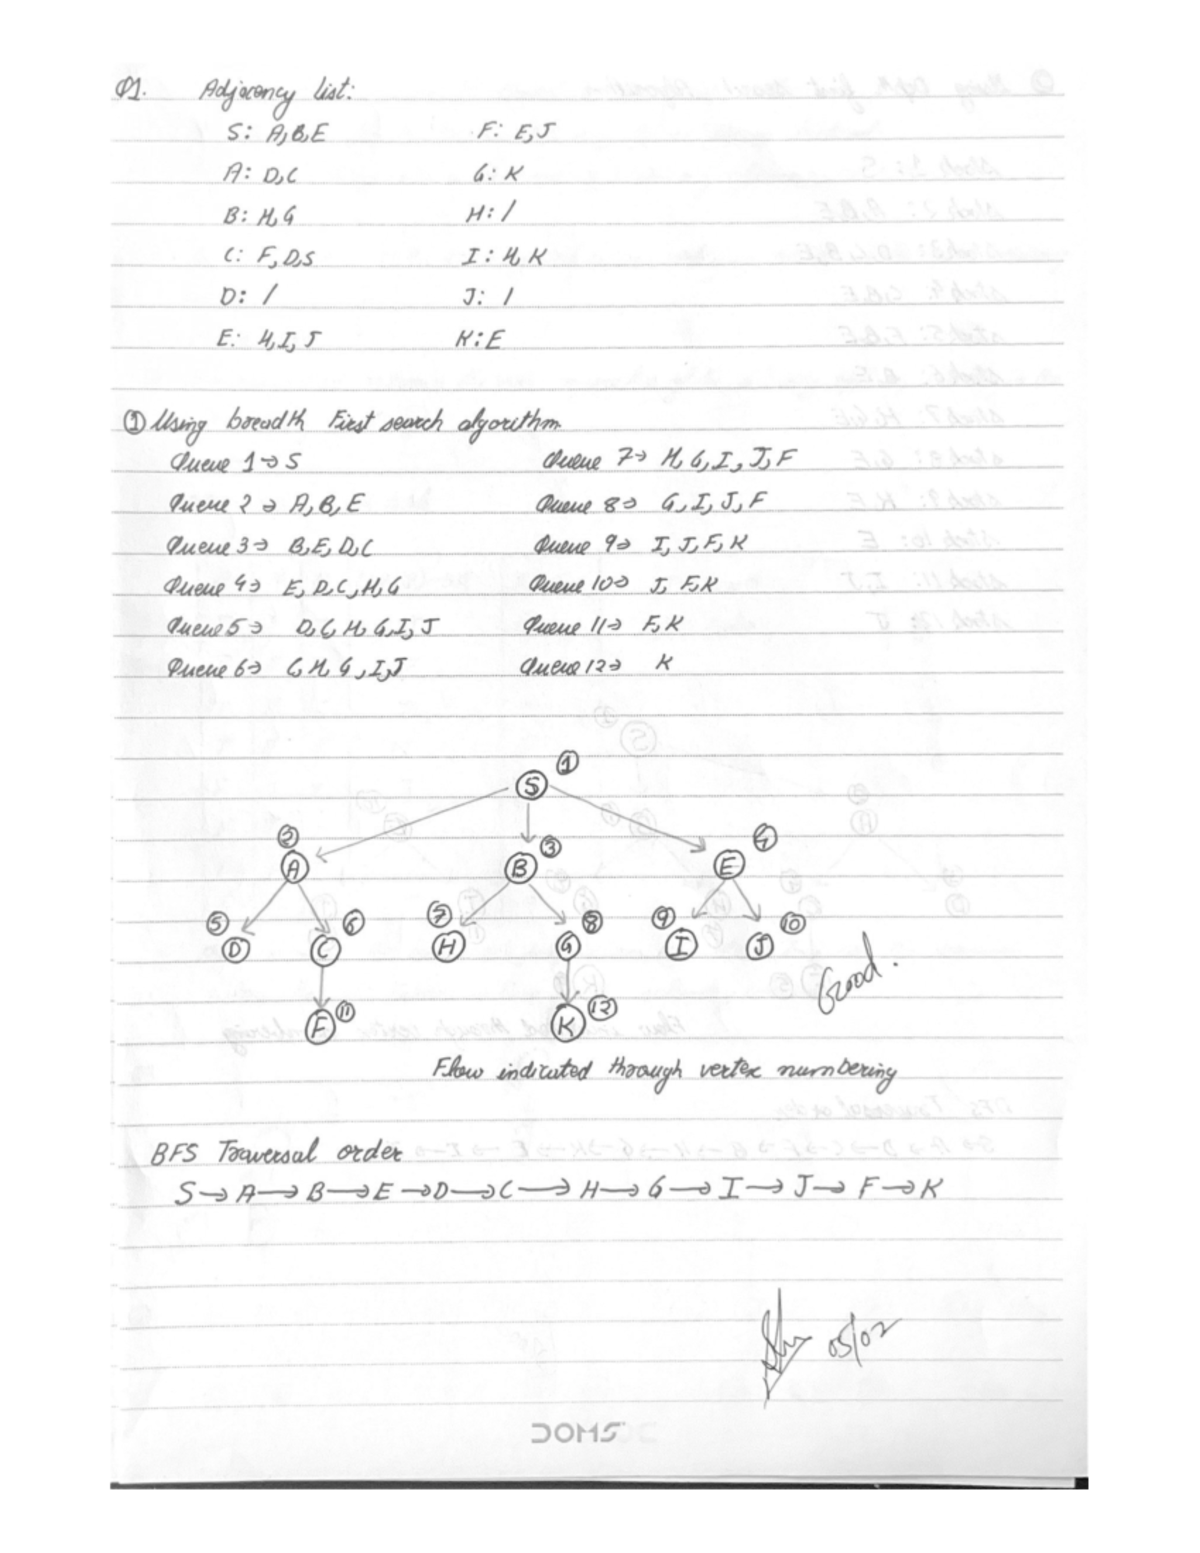 Q1. Adjacency list:
S: A,B,E F: E,J
A: D,C G: K
B: H,G H: /
C: F,D,S I: H,K
D: / J: /
E: H,I,J K: E
① Using breadth First search algorithm
Queue 1→ S Queue 7→ H,G,I,J,F
Queue 2→ A,B,E Queue 8→ G,I,J,F
Queue 3→ B,E,D,C Queue 9→ I,J,F,K
Queue 4→ E,D,C,H,G Queue 10→ J,F,K
Queue 5→ D,C,H,G,I,J Queue 11→ F,K
Queue 6→ C,H,G,I,J Queue 12→ K
S ①
A ② B ③ E ④
D ⑤ C ⑥ H ⑦ G ⑧ I ⑨ J ⑩
Good.
F ⑪ K ⑫
Flow indicated through vertex numbering
BFS Traversal order
S→A→B→E→D→C→H→G→I→J→F→K
05/02
DOMS